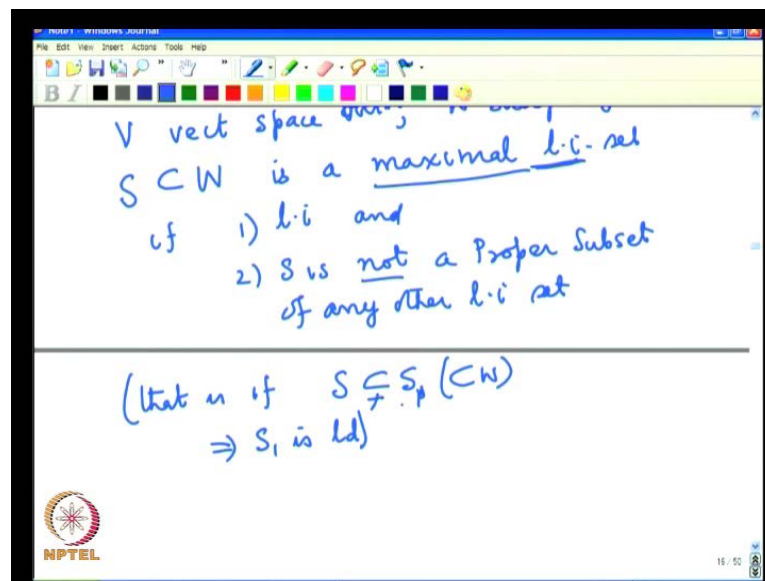 Note1 - Windows Journal
File Edit View Insert Actions Tools Help
B I
V vect space
S ⊂ W is a maximal l.i. set
if 1) l.i and
2) S is not a Proper Subset
of any other l.i set
(that is if S ⊊ S₁ (⊂ W)
⇒ S₁ is ld)
NPTEL
16 / 50